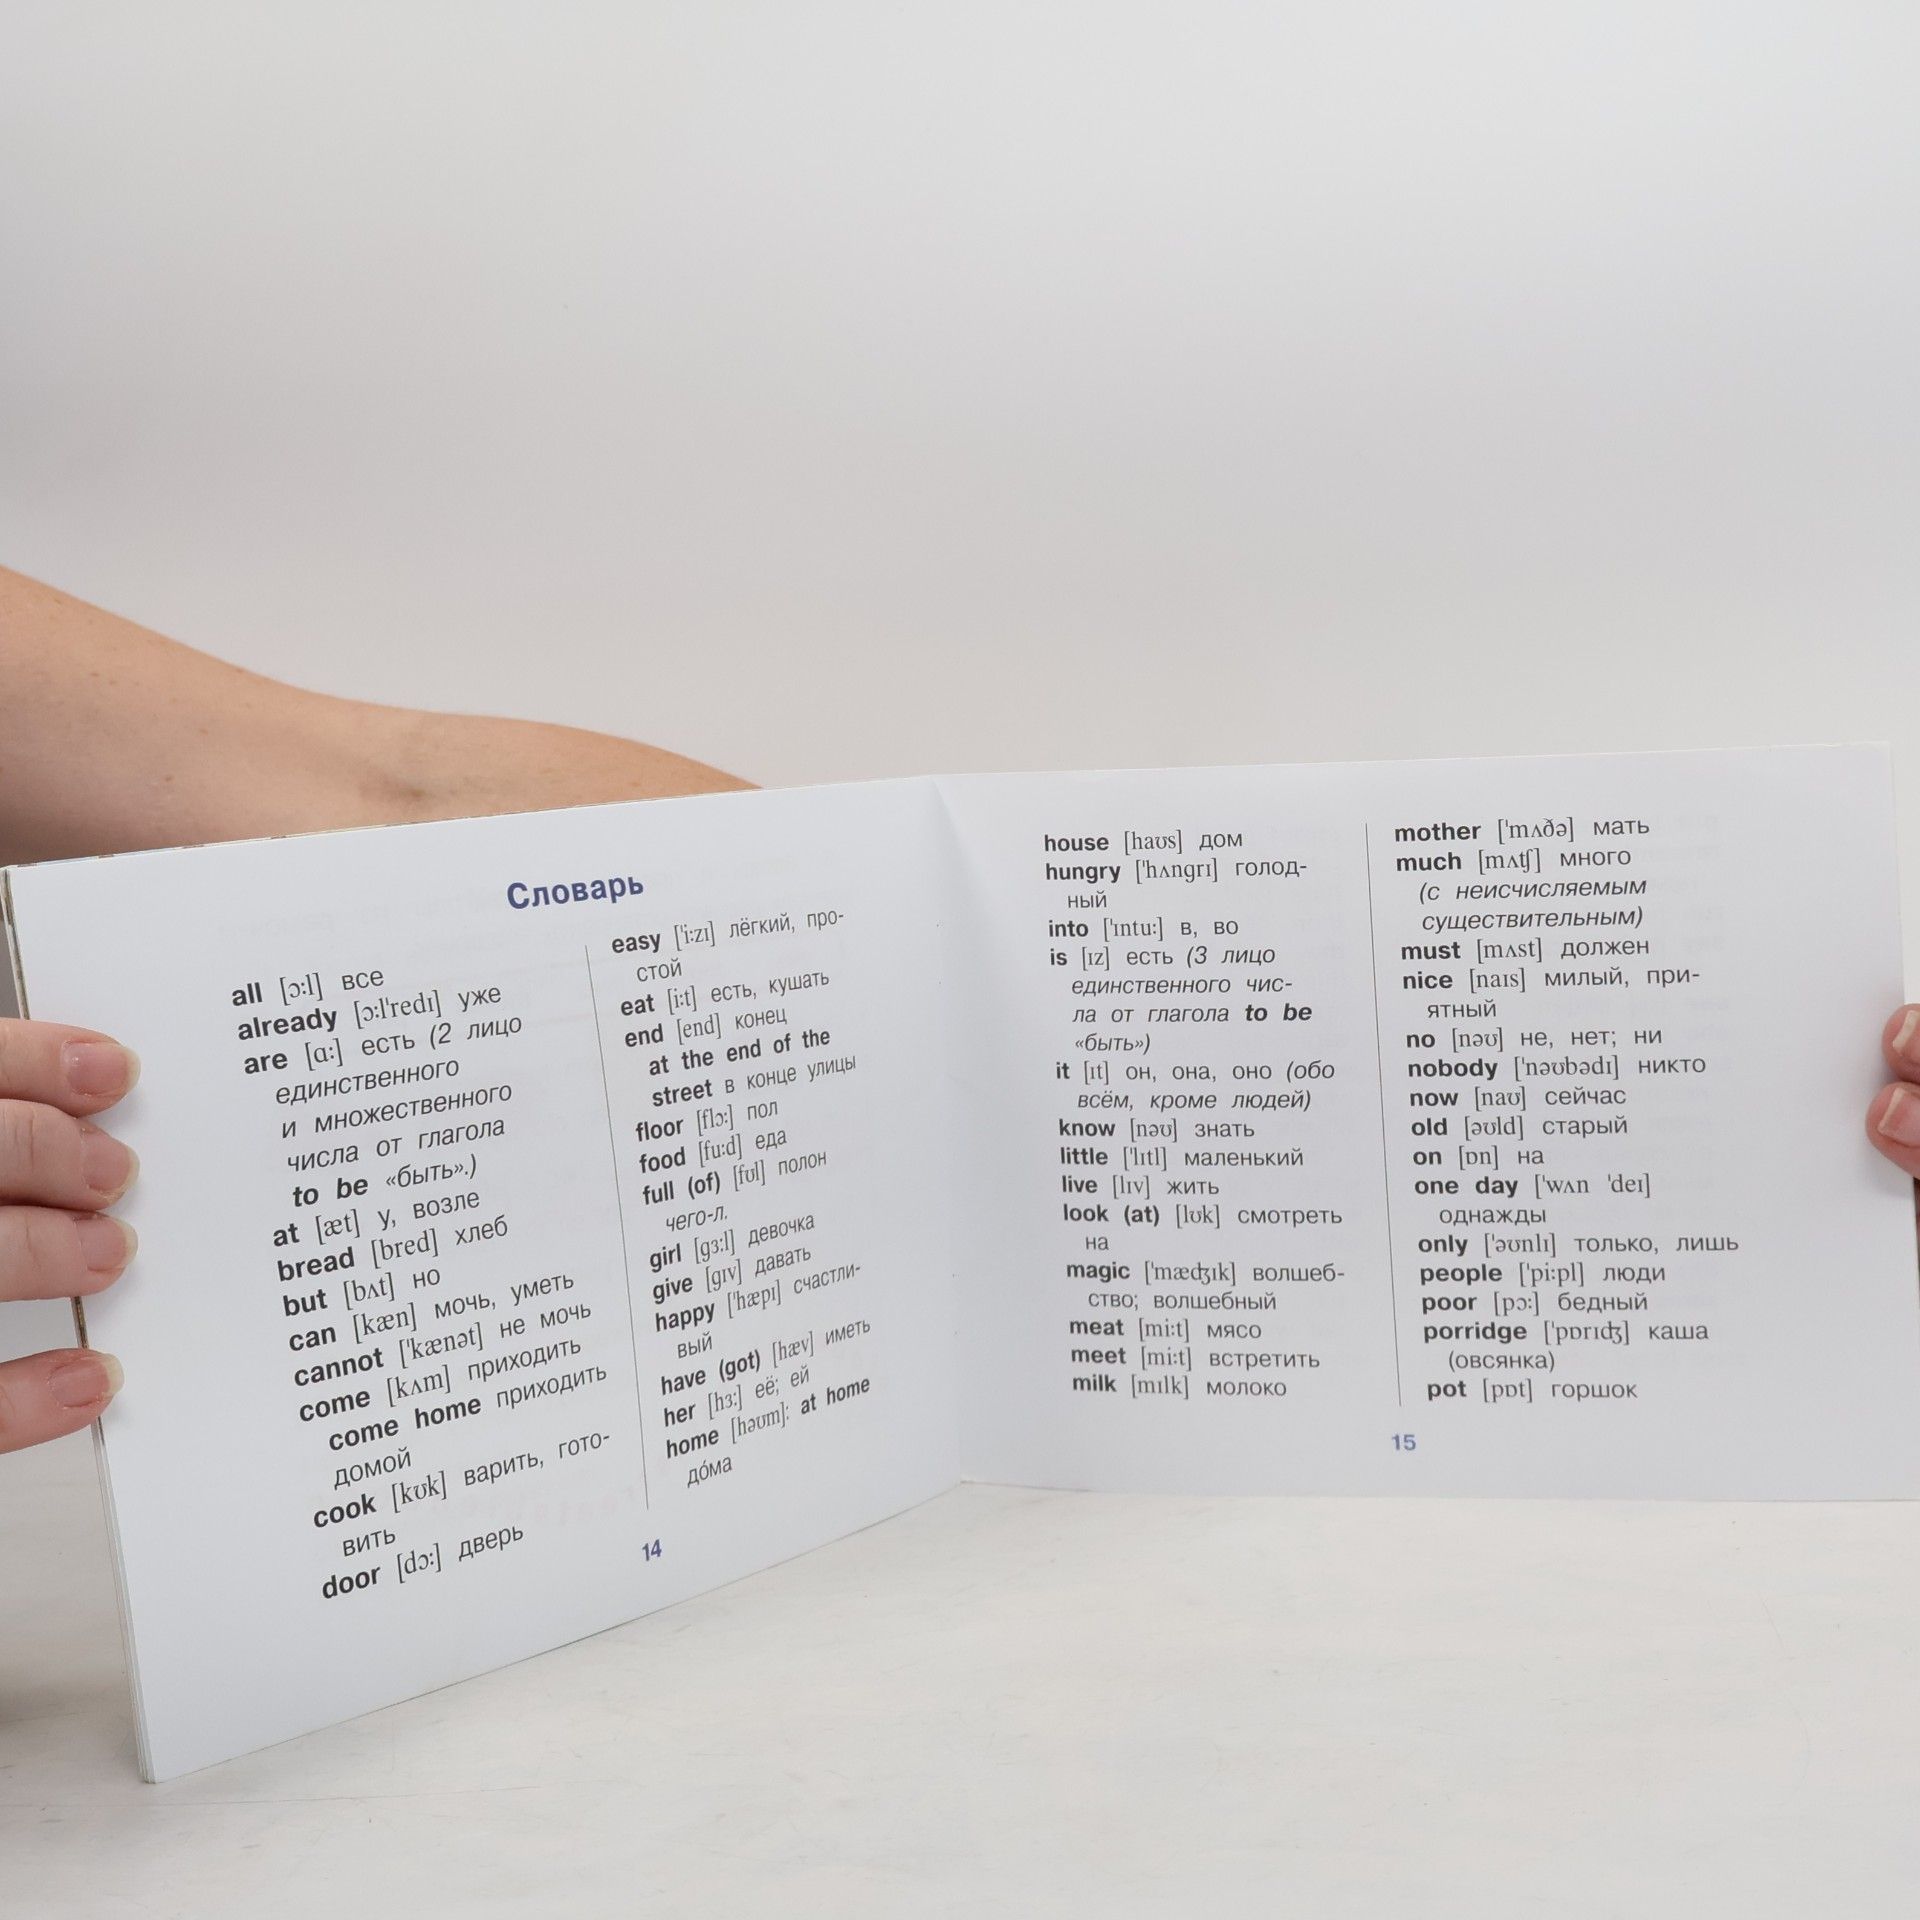 Словарь
all [ɔ:l] все
already [ɔ:l'redɪ] уже
are [ɑ:] есть (2 лицо
единственного
и множественного
числа от глагола
to be «быть».)
at [æt] у, возле
bread [bred] хлеб
but [bʌt] но
can [kæn] мочь, уметь
cannot ['kænət] не мочь
come [kʌm] приходить
come home приходить
домой
cook [kʊk] варить, гото-
вить
door [dɔ:] дверь
easy ['i:zɪ] лёгкий, про-
стой
eat [i:t] есть, кушать
end [end] конец
at the end of the
street в конце улицы
floor [flɔ:] пол
food [fu:d] еда
full (of) [fʊl] полон
чего-л.
girl [gɜ:l] девочка
give [gɪv] давать
happy ['hæpɪ] счастли-
вый
have (got) [hæv] иметь
her [hɜ:] её; ей
home [həʊm]: at home
до́ма
14
house [haʊs] дом
hungry ['hʌngrɪ] голод-
ный
into ['ɪntu:] в, во
is [ɪz] есть (3 лицо
единственного чис-
ла от глагола to be
«быть»)
it [ɪt] он, она, оно (обо
всём, кроме людей)
know [nəʊ] знать
little ['lɪtl] маленький
live [lɪv] жить
look (at) [lʊk] смотреть
на
magic ['mæʤɪk] волшеб-
ство; волшебный
meat [mi:t] мясо
meet [mi:t] встретить
milk [mɪlk] молоко
mother ['mʌðə] мать
much [mʌʧ] много
(с неисчисляемым
существительным)
must [mʌst] должен
nice [naɪs] милый, при-
ятный
no [nəʊ] не, нет; ни
nobody ['nəʊbədɪ] никто
now [naʊ] сейчас
old [əʊld] старый
on [ɒn] на
one day ['wʌn 'deɪ]
однажды
only ['əʊnlɪ] только, лишь
people ['pi:pl] люди
poor [pɔ:] бедный
porridge ['pɒrɪʤ] каша
(овсянка)
pot [pɒt] горшок
15